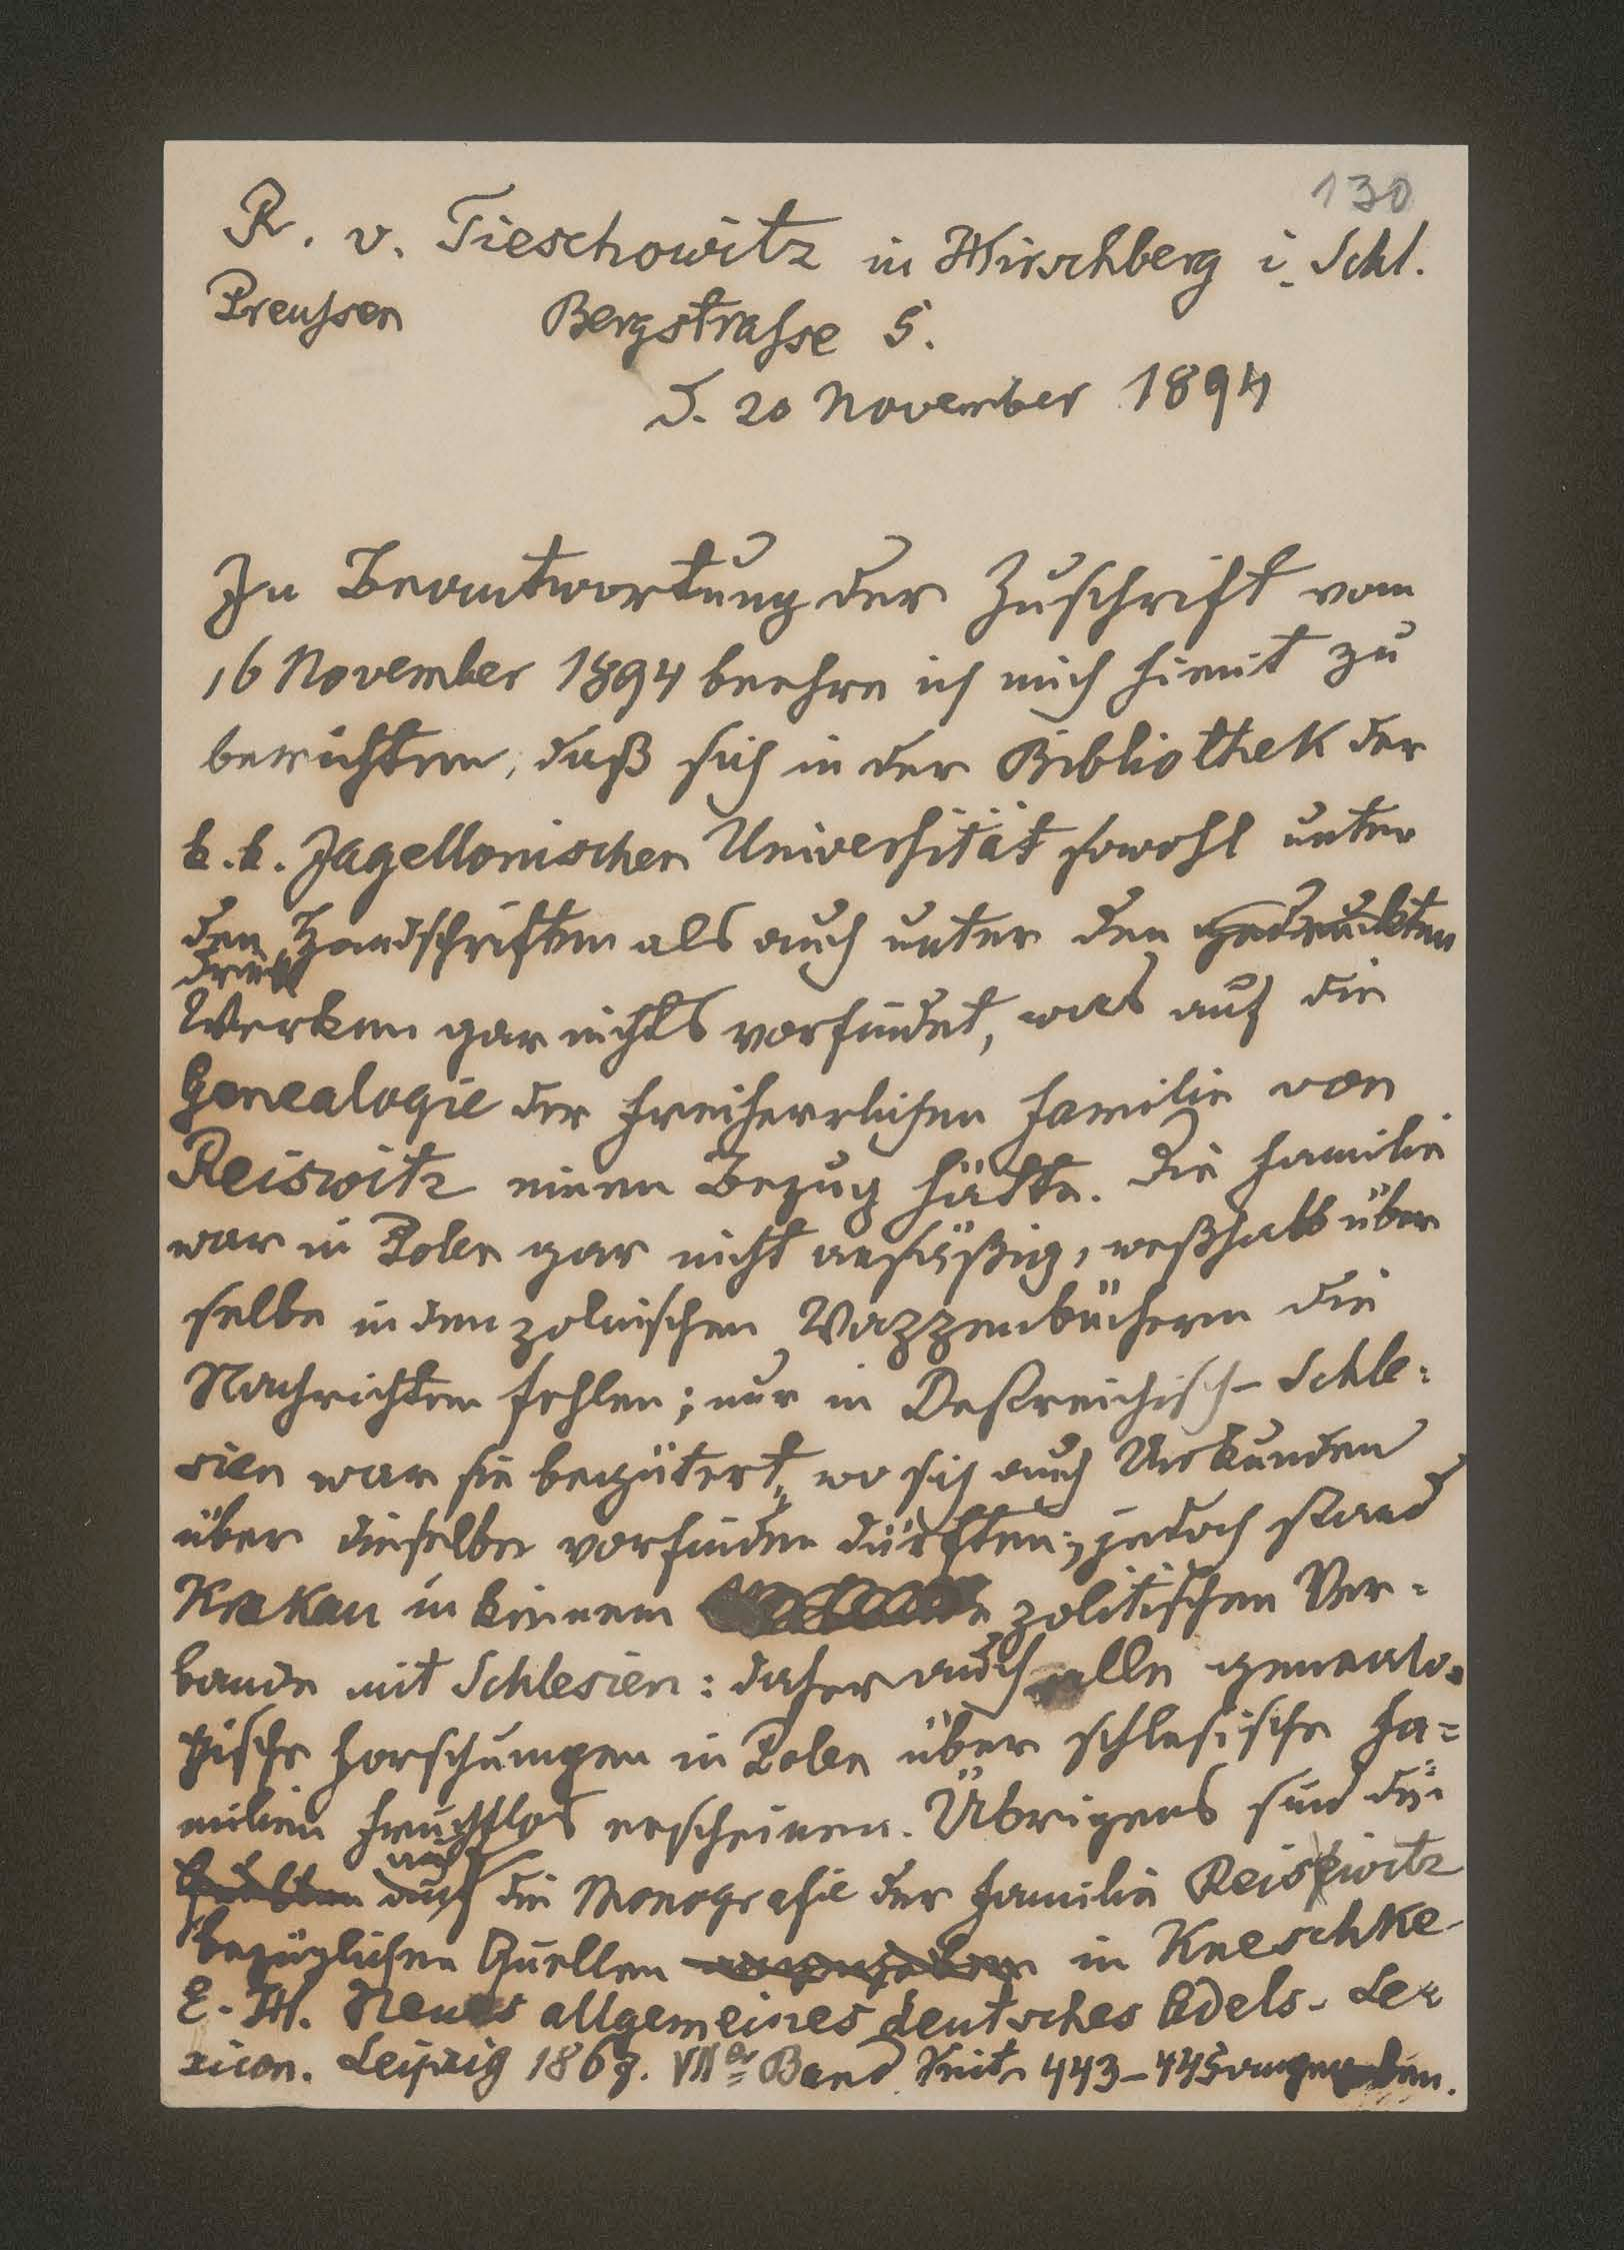 130
R. v. Tieschowitz in Hirschberg i. Schl.
Preussen Bergstrasse 5.
d. 20 November 1894
In Beantwortung der Zuschrift vom
16 November 1894 beehre ich mich hiemit zu
berichten, daß sich in der Bibliothek der
k.k. Jagellonischen Universität sowohl unter
den Handschriften als auch unter den gedruckten
Druck
Werken gar nichts vorfindet, was auf die
Genealogie der freiherrlichen Familie von
Reiswitz einen Bezug hätte. Die Familie
war in Polen gar nicht ansäßig, weßhalb über
selbe in den polnischen Wappenbüchern die
Nachrichten fehlen; nur in Oestreichisch-Schle=
sien war sie begütert, wo sich auch Urkunden
über dieselbe vorfinden dürften; jedoch stand
Krakau in keinem politischen Ver=
bande mit Schlesien: daher auch alle genealo=
gische Forschungen in Polen über schlesische Fa=
milien fruchtlos erscheinen. Übrigens sind die
auf
auf die Monografie der Familie Reiswitz
bezüglichen Quellen in Kneschke
E. H. Neues allgemeines deutsches Adels-Le=
xicon. Leipzig 1867. VIIer Band Seite 443-445 angegeben.